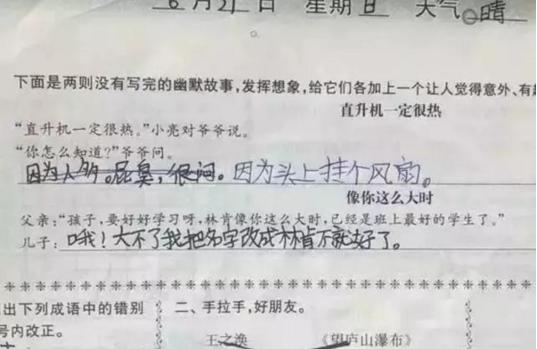 6月21日 星期日 天气 晴
下面是两则没有写完的幽默故事,发挥想象,给它们各加上一个让人觉得意外、有
直升机一定很热
“直升机一定很热。”小亮对爷爷说。
“你怎么知道?”爷爷问。
因为人多。屁臭,很闷。因为头上挂个风扇。
像你这么大时
父亲:“孩子,要好好学习呀,林肯像你这么大时,已经是班上最好的学生了。”
儿子:哦!大不了我把名字改成林肯不就好了。
出下列成语中的错别
二、手拉手,好朋友。
号内改正。
王之涣
《望庐山瀑布》